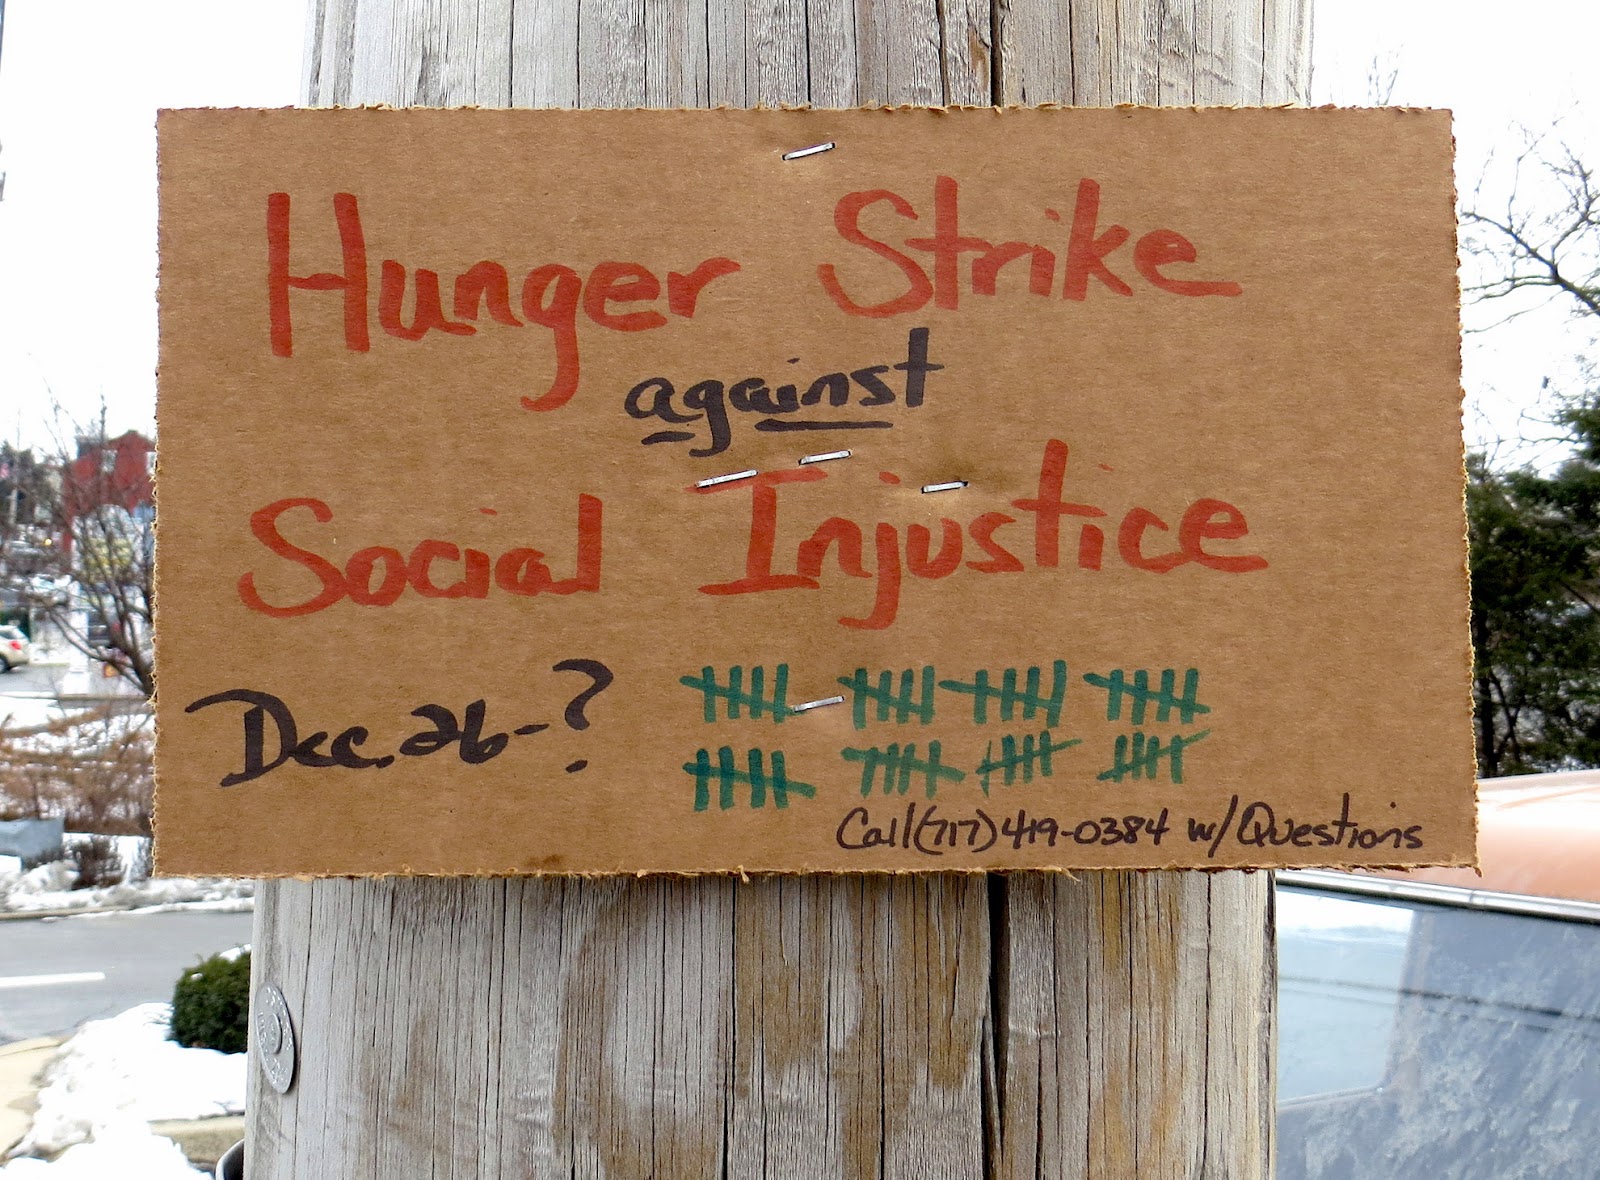 Hunger Strike
against
Social Injustice
Dec. 26-?
Call (717) 419-0384 w/Questions